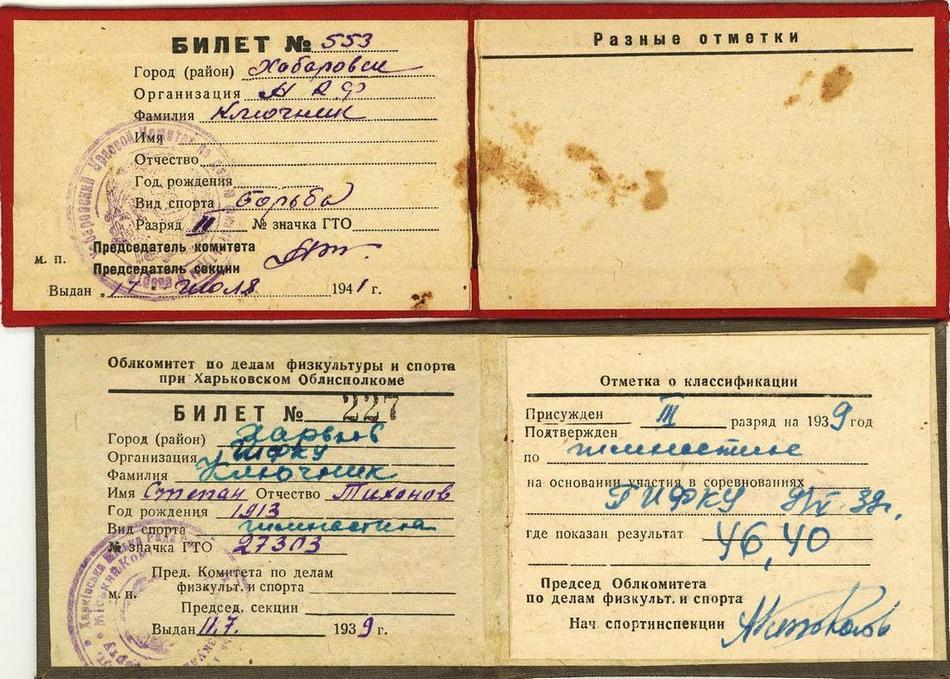 БИЛЕТ № 553
Город (район) Хабаровск
Организация
Фамилия Ключник
Имя
Отчество
Год рождения
Вид спорта борьба
Разряд III № значка ГТО
Председатель комитета
м. п.
Председатель секции
Выдан „17 " июля 1941 г.
Разные отметки
Облкомитет по делам физкультуры и спорта
при Харьковском Облисполкоме
БИЛЕТ № 227
Город (район) Харьков
Организация ГИФКУ
Фамилия Ключник
Имя Степан Отчество Тихонов
Год рождения 1913
Вид спорта гимнастика
№ значка ГТО 27303
Пред. Комитета по делам
физкульт. и спорта
м. п.
Председ. секции
Выдан 11.7. 1939 г.
Отметка о классификации
Присужден III разряд на 1939 год
Подтвержден
по гимнастике
на основании участия в соревнованиях
ГИФКУ 39г.
где показан результат 46,40
Председ Облкомитета
по делам физкульт. и спорта
Нач. спортинспекции